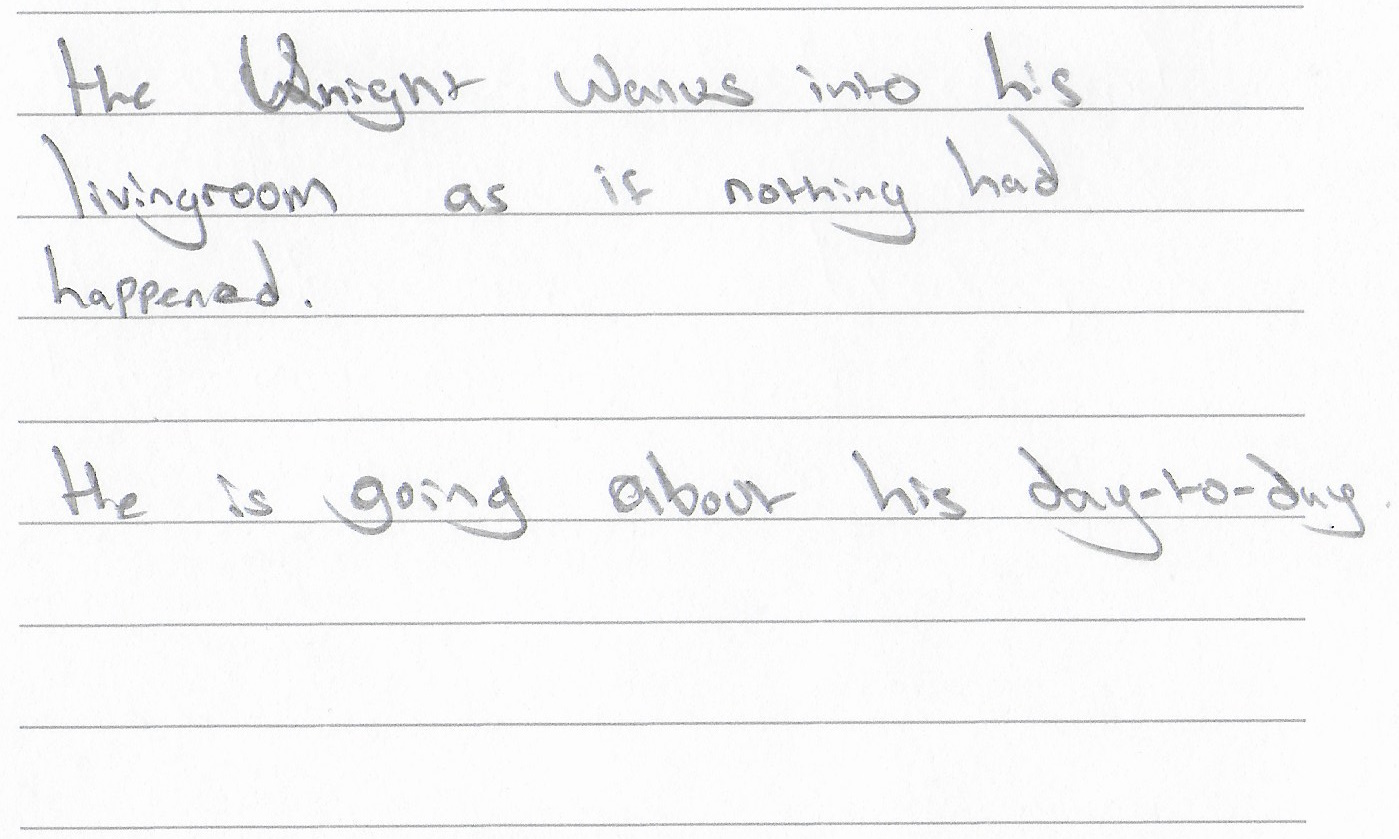 the Knight walks into his
livingroom as if nothing had
happened.
the is going about his day-to-day.